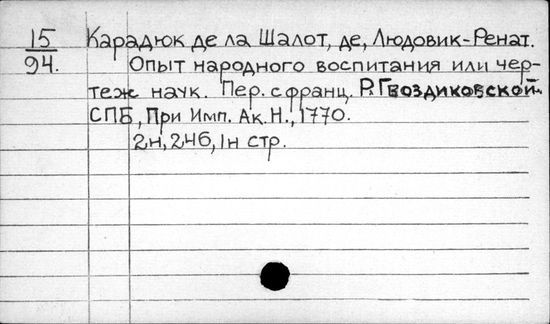 15
94.
Карадюк де ла Шалот, де, Людовик-Ренат.
Опыт народного воспитания или чер-
теж наук. Пер. с франц. Р. Гвоздиковской.
СПБ, При Имп. Ак. Н., 1770.
2н, 246, 1н стр.